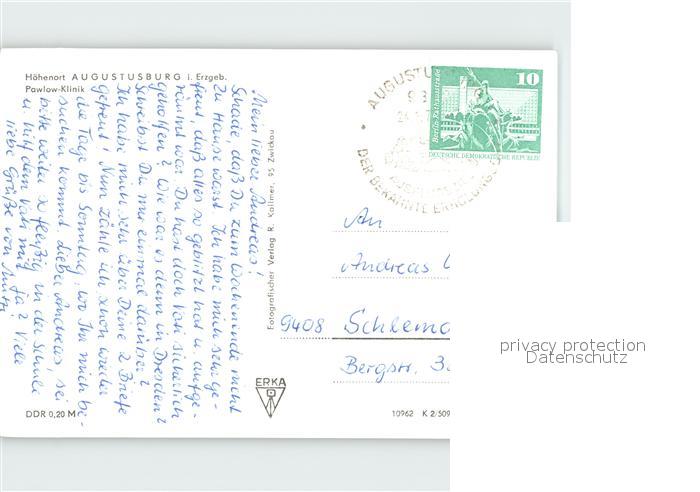 Höhenort AUGUSTUSBURG i. Erzgeb.
Pawlow-Klinik
Mein lieber Andreas!
Schade, daß Du zum Wochenende nicht
zu Hause warst. Ich habe mich sehr ge-
freut, daß alles so geblitzt hat u. aufge-
räumt war. Du hast doch Vati sicherlich
geholfen? Wie war es denn in Dresden?
Schreibst Du mir einmal darüber?
Ich habe mich sehr über Deine 2 Briefe
gefreut! Nun zähle ich schon wieder
die Tage bis Sonntag, wo Ihr mich be-
suchen kommt. Lieber Andreas, sei
bitte weiter so fleißig in der Schule
u. hilf dem Vati mit, ja? Viele
liebe Grüße von Mutti
DDR 0,20 M
Fotografischer Verlag R. Kallmer, 95 Zwickau
ERKA
AUGUSTU
DER BEKANNTE ERHOLUNGSO
10
Berlin-Rathausstraße
DEUTSCHE DEMOKRATISCHE REPUBLIK
An
Andreas
9408 Schlema
Bergstr. 3
10962 K 2/509
privacy protection
Datenschutz